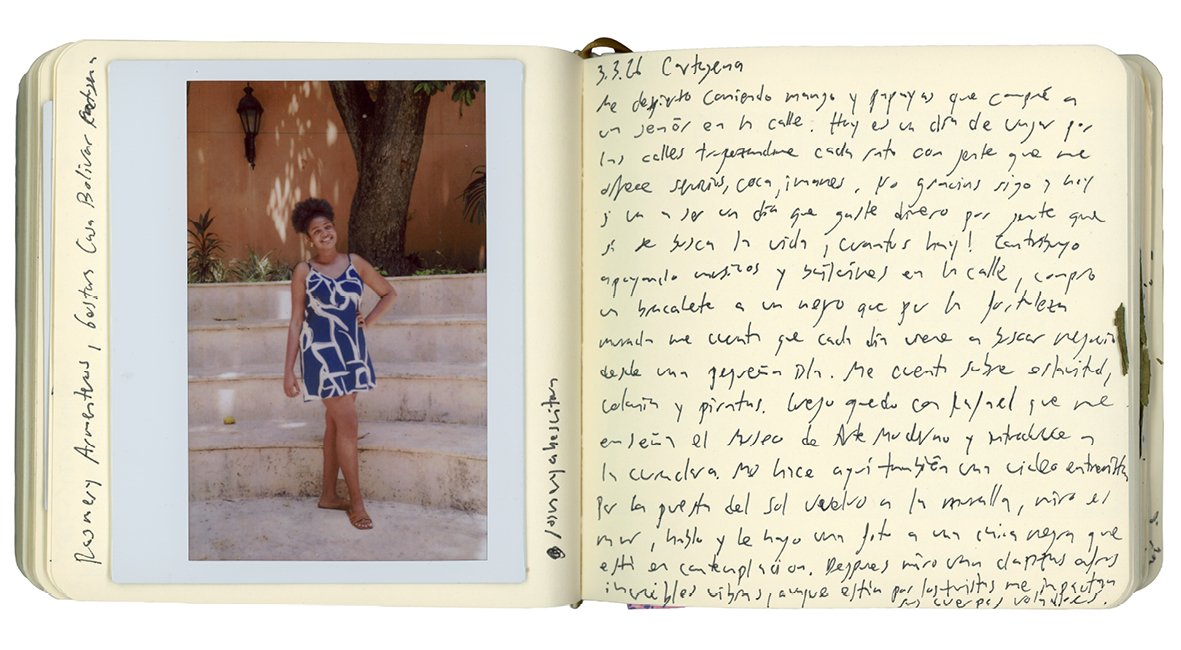 Rosmery Armenteros, Gestora Casa Bolívar
@rosmeryabaselstan
3.3.26 Cartagena
Me despierto comiendo mango y papayas que compré a
un señor en la calle. Hoy es un día de vagar por
las calles tropezandome cada rato con gente que me
ofrece servicios, coca, imanes. No gracias sigo y hoy
si va a ser un día que gaste dinero por gente que
si se busca la vida ¡cuantos hay! Contribuyo
apoyando musicos y bailarines en la calle, compro
un bracalete a un negro que por la fortaleza
murada me cuenta que cada día viene a buscar negocio
desde una pequeña Isla. Me cuenta sobre esclavitud,
colonia y piratas. Luego quedo con Rafael que me
enseña el Museo de Arte Moderno y introduce a
la curadora. Me hace aquí también una video entrevista
Por la puesta del sol vuelvo a la muralla, miro el
mar, hablo y le hago una foto a una chica negra que
está en contemplación. Despues miro una danzas afros
increibles vibras, aunque están por los turistas me impactan
sus cuerpos voladores.